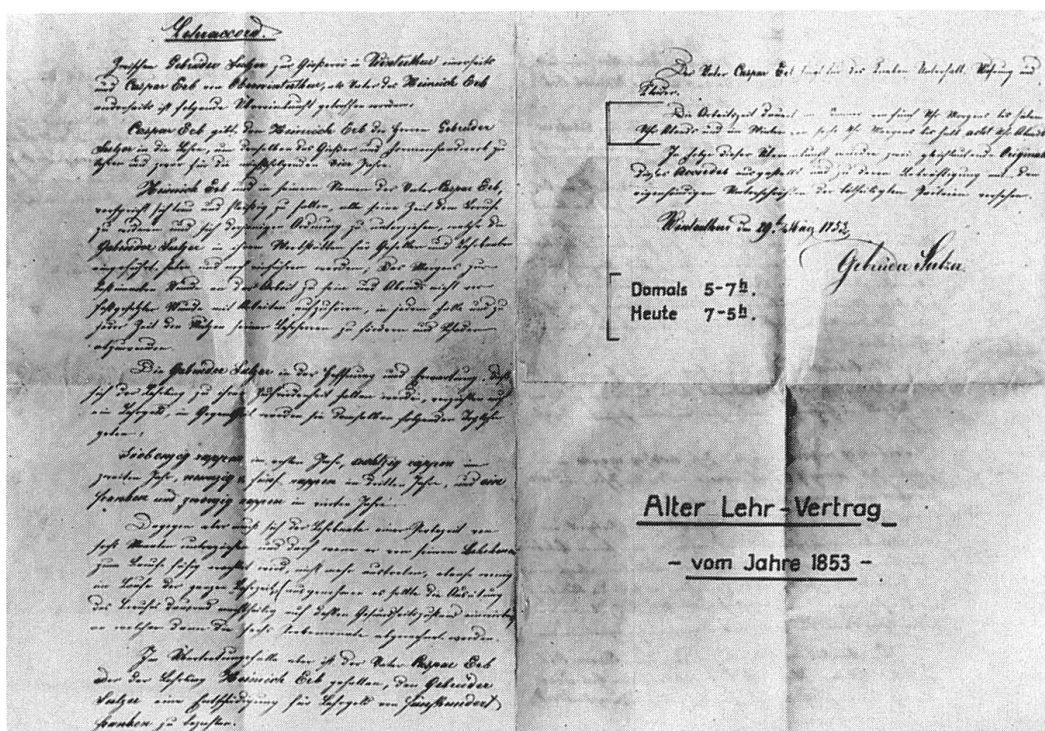 Lehraccord.
Zwischen Gebrüder Sulzer zur Gießerei in Winterthur einerseits
und Caspar Erb von Oberwinterthur, als Vater des Heinrich Erb
anderseits ist folgende Übereinkunft getroffen worden.
Caspar Erb gibt den Heinrich Erb den Herren Gebrüder
Sulzer in die Lehre, um denselben das Gießer und Formerhandwerk zu
lehren und zwar für die nächstfolgenden vier Jahre.
Heinrich Erb und in seinem Namen der Vater Caspar Erb,
verspricht sich treu und fleißig zu halten, alle seine Zeit dem Berufe
zu widmen und sich derjenigen Ordnung zu unterziehen, welche die
Gebrüder Sulzer in ihren Werkstätten für Gesellen und Lehrknaben
eingeführt haben und noch einführen werden, des Morgens zur
bestimmten Stunde an der Arbeit zu sein und Abends nicht vor
festgesetzter Stunde mit Arbeiten aufzuhören, in jedem Falle und zu
jeder Zeit den Nutzen seiner Lehrherren zu fördern und Schaden
abzuwenden.
Die Gebrüder Sulzer in der Hoffnung und Erwartung, daß
sich der Lehrling zu ihrer Zufriedenheit halten werde, verzichten auf
ein Lehrgeld, in Gegentheil werden sie demselben folgenden Taglohn
geben:
Siebenzig rappen im ersten Jahr, achtzig rappen im
zweiten Jahr, neunzig & fünf rappen im dritten Jahre, und ein
franken und zwanzig rappen im vierten Jahre.
Dagegen aber muß sich der Lehrknabe einer Probezeit von
sechs Monaten unterziehen und darf wenn er von seinem Lehrherrn
zum Berufe fähig erachtet wird nicht mehr austreten, ebenso wenig
im Laufe der ganzen Lehrzeit, ausgenommen es sollte die Ausübung
des Berufes dauernd nachtheilig auf dessen Gesundheitszustand einwirken
in welcher dann die sechs Probemonate abgerechnet werden.
Im Übertretungsfalle aber ist der Vater Caspar Erb
oder der Lehrling Heinrich Erb gehalten, den Gebrüder
Sulzer eine Entschädigung für Lehrgeld von fünfhundert
franken zu bezahlen.
Der Vater Caspar Erb sorgt für des Knaben Unterhalt, Wohnung und
Kleider.
Die Arbeitszeit dauert im Sommer von fünf Uhr Morgens bis sieben
Uhr Abends und im Winter von sechs Uhr Morgens bis halb acht Uhr Abends
In Folge dieser Übereinkunft wurden zwei gleichlautende Originale
dieses Accordes ausgestellt und zu deren Bekräftigung mit den
eigenhändigen Unterschriften der betheiligten Parteien versehen.
Winterthur den 29. März 1853.
Gebrüder Sulzer
Damals 5-7h.
Heute 7-5h.
Alter Lehr-Vertrag
- vom Jahre 1853 -